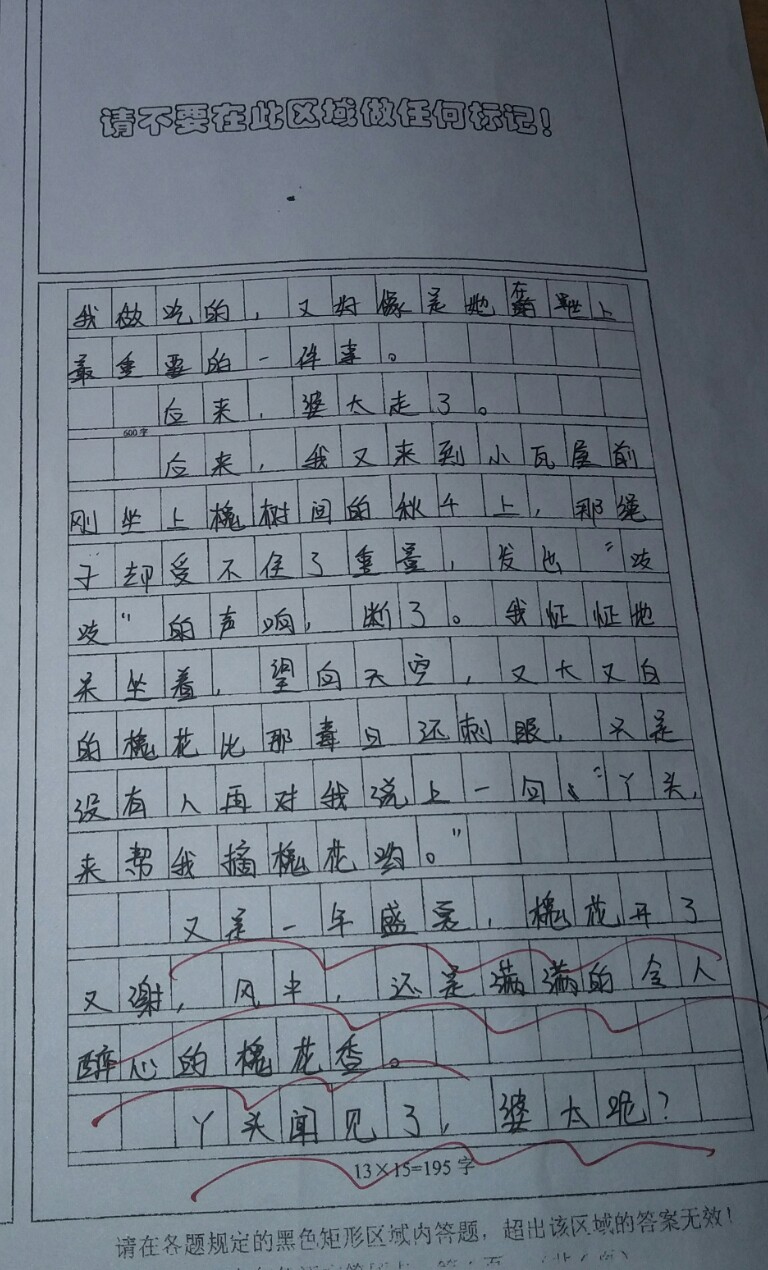 请不要在此区域做任何标记!
我做吃的,又好像是她在世上
最重要的一件事。
后来,婆太走了。
600字
后来,我又来到小瓦屋前
刚坐上槐树间的秋千上,那绳
子却受不住了重量,发出“吱
吱”的声响,断了。我怔怔地
呆坐着,望向天空,又大又白
的槐花比那毒日还刺眼,只是
没有人再对我说上一句:“丫头,
来帮我摘槐花哟。”
又是一年盛夏,槐花开了
又谢,风中,还是满满的令人
醉心的槐花香。
丫头闻见了,婆太呢?
13×15=195字
请在各题规定的黑色矩形区域内答题,超出该区域的答案无效!